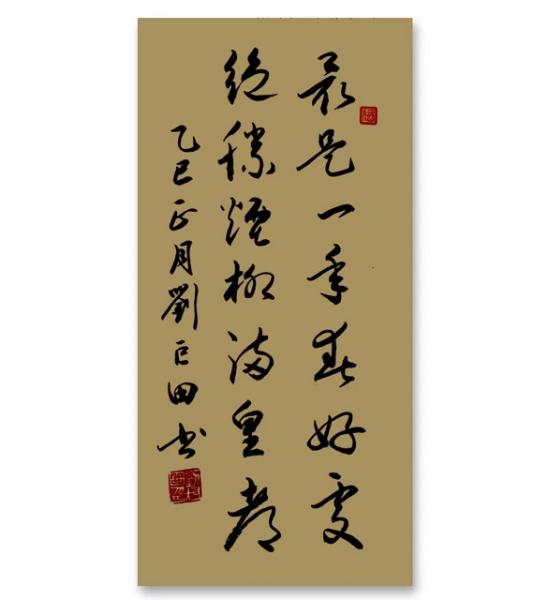 最是一年春好處
絕勝煙柳滿皇都
乙巳正月劉巨田书